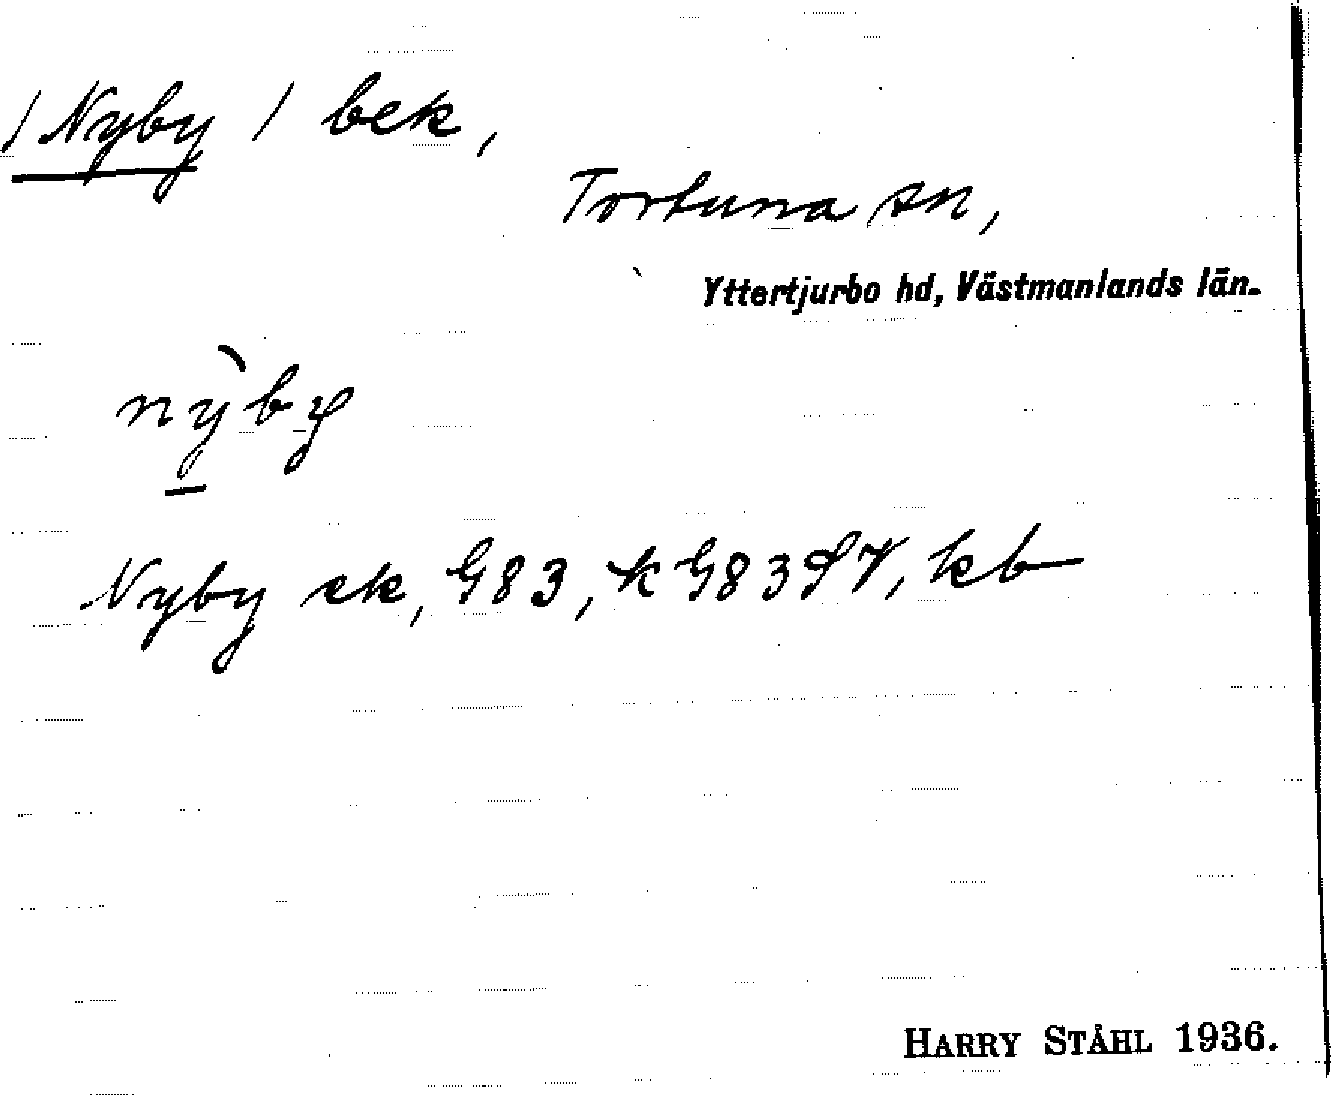 / Nyby / bek,
Tortuna sn,
Yttertjurbo hd, Västmanlands län.
nỳby
Nyby ek, G83, k G83 SV, kb
HARRY STÅHL 1936.